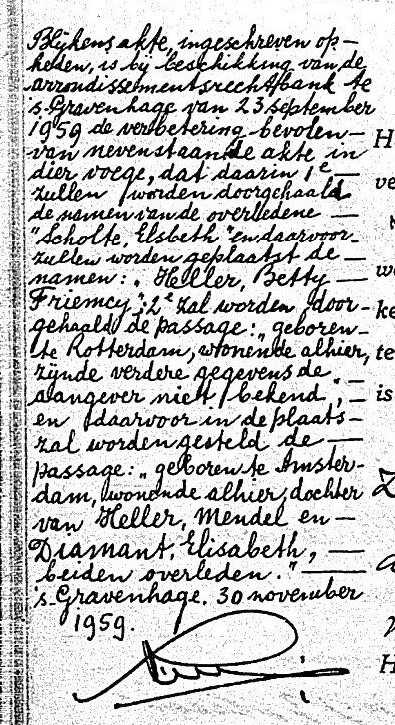 Blijkens akte, ingeschreven op-
heden, is bij beschikking van de
arrondissementsrechtbank te
's-Gravenhage van 23 september
1959 de verbetering bevolen —
van nevenstaande akte in
dier voege, dat daarin 1e —
zullen worden doorgehaald
de namen van de overledene —
"Scholte, Elsbeth" en daarvoor-
zullen worden geplaatst de —
namen: "Heller, Betty —
Friemcy"; 2e zal worden door-
gehaald de passage: "geboren-
te Rotterdam, wonende alhier,
zijnde verdere gegevens de —
aangever niet bekend", —
en daarvoor in de plaats-
zal worden gesteld de —
passage: "geboren te Amster-
dam, wonende alhier, dochter
van Heller, Mendel en —
Diamant, Elisabeth, —
beiden overleden." —
's-Gravenhage, 30 november
1959.
H
ve
w
ke
te
is
H